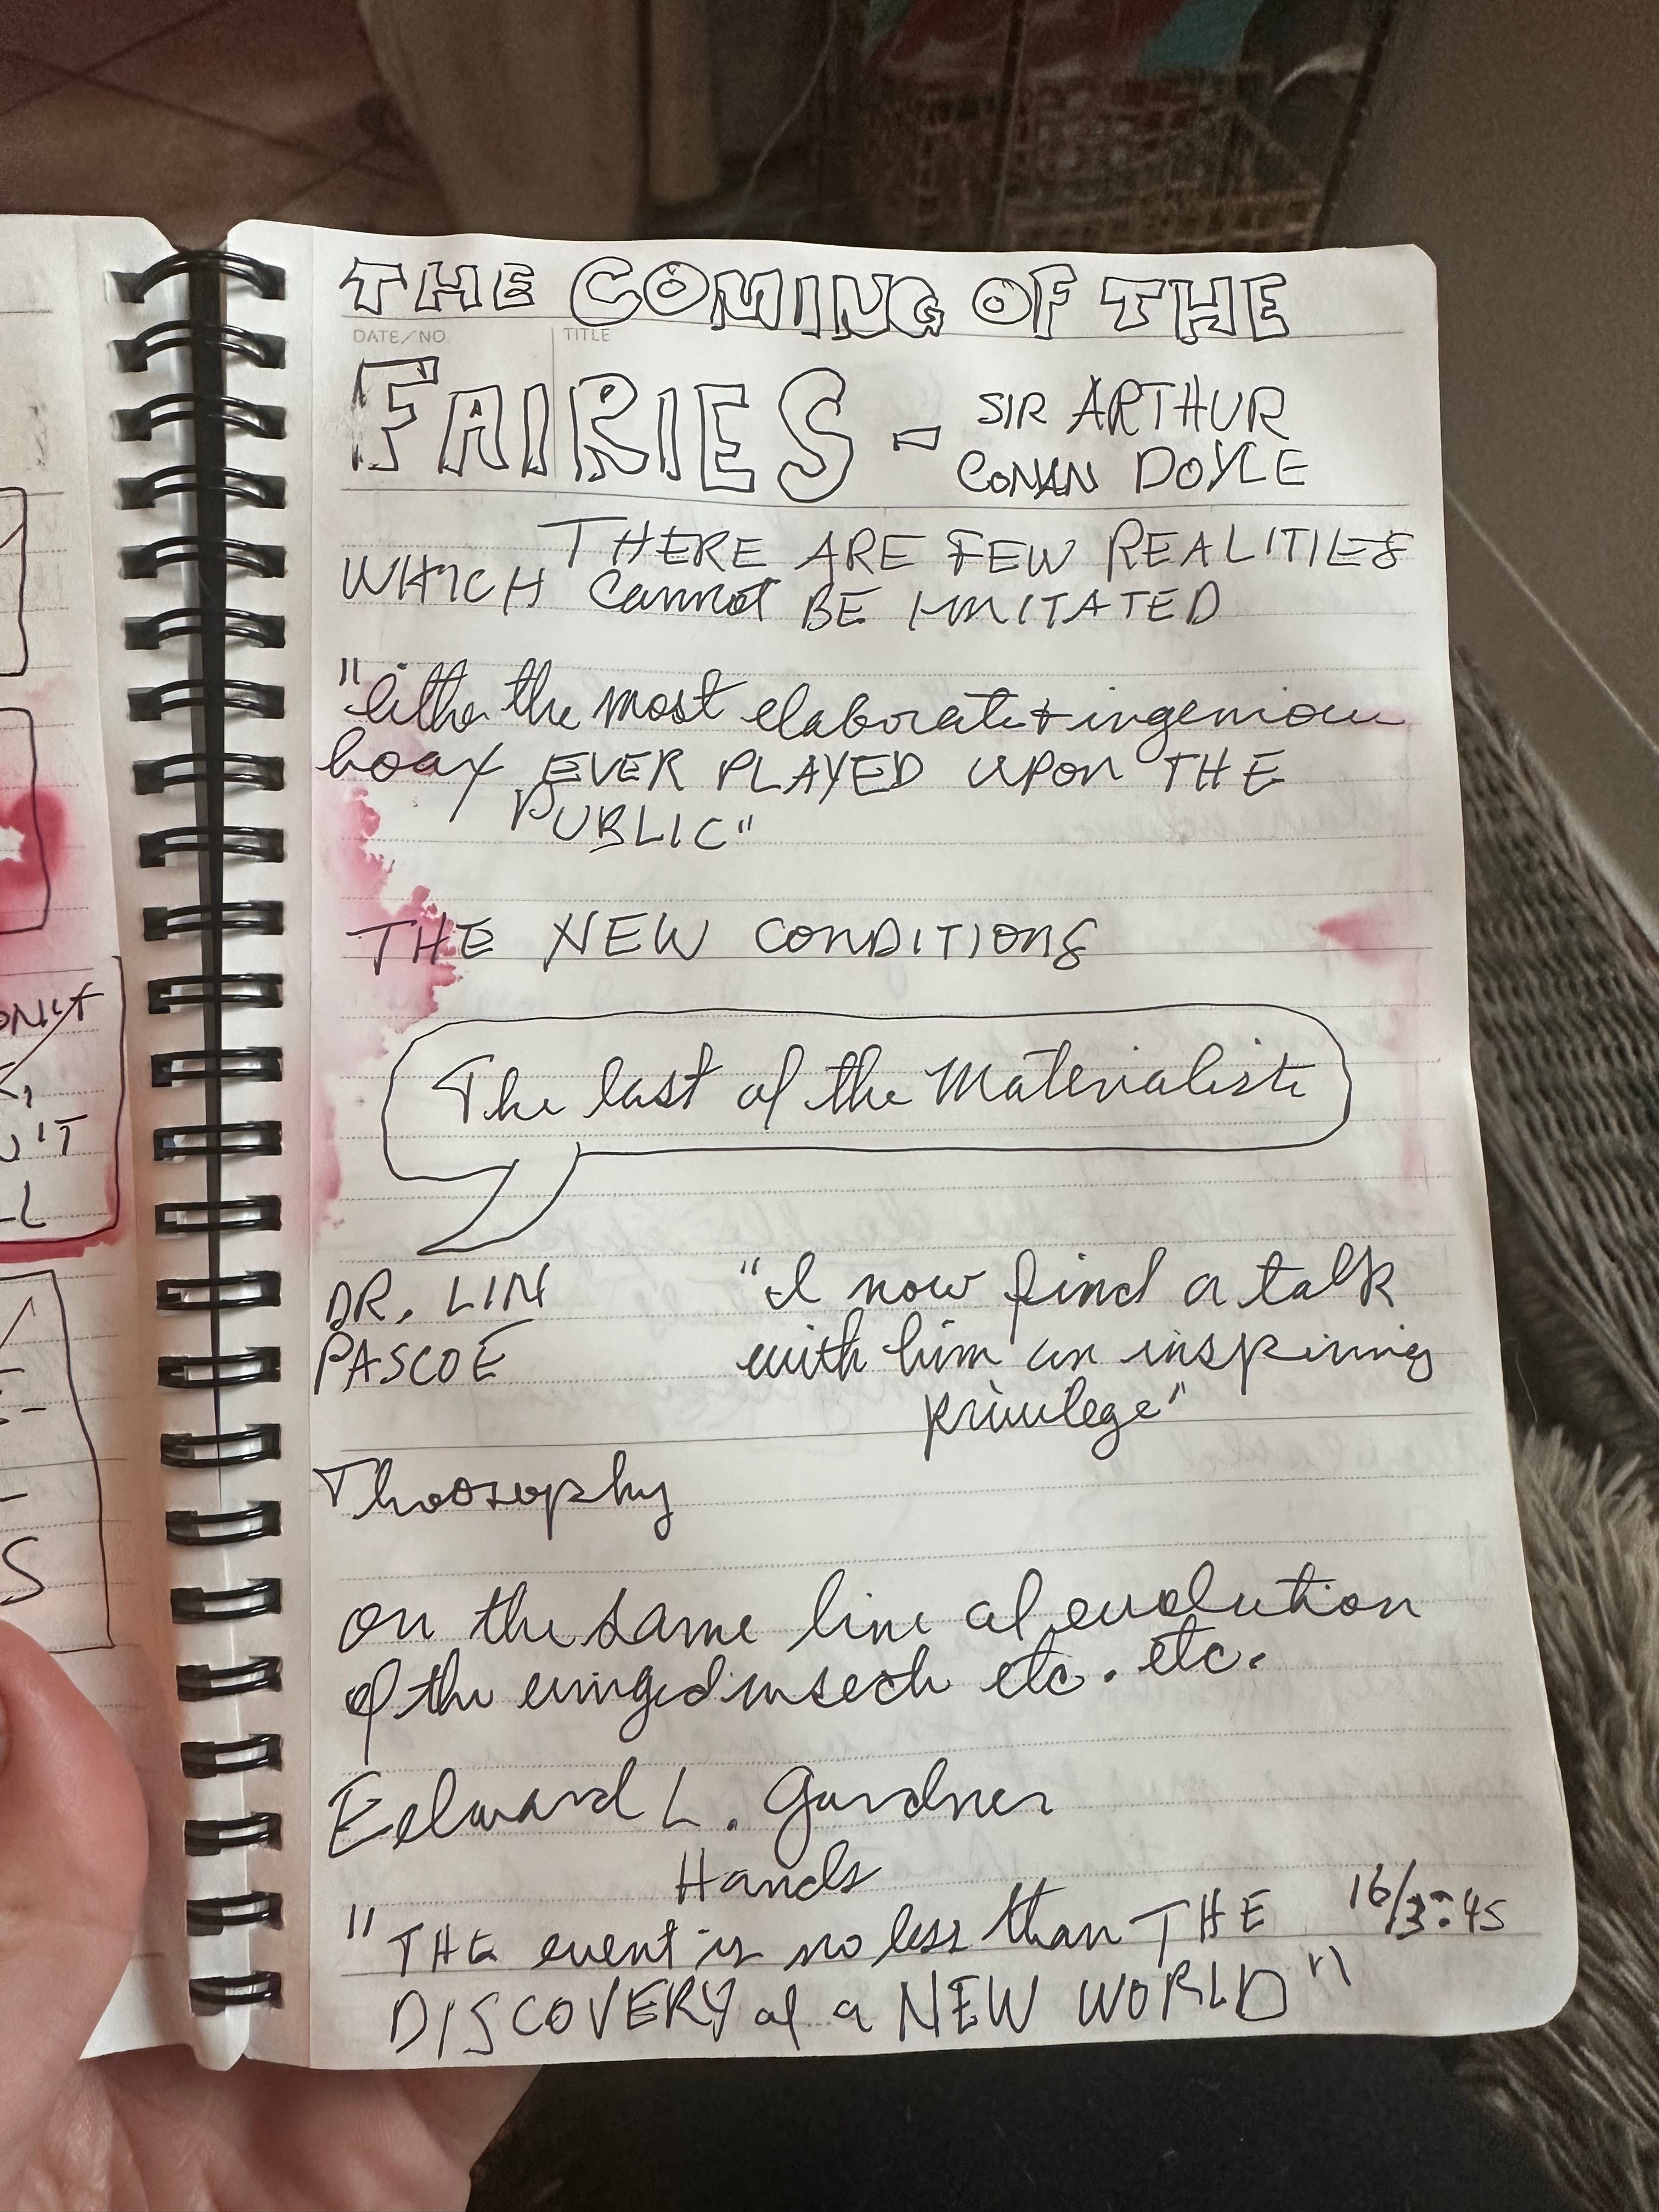 THE COMING OF THE
DATE/NO. TITLE
FAIRIES - SIR ARTHUR
CONAN DOYLE
THERE ARE FEW REALITIES
WHICH cannot BE IMITATED
"Eithe the most elaborate + ingenious
hoax EVER PLAYED UPON THE
PUBLIC"
THE NEW CONDITIONS
The last of the Materialists
DR. LIN
PASCOE
"I now find a talk
with him an inspiring
privilege"
Thoosophy
on the same line of evolution
of the winged insects etc. etc.
Edward L. Gardner
Hands
"THE event is no less than THE
16/3:45
DISCOVERY of a NEW WORLD"